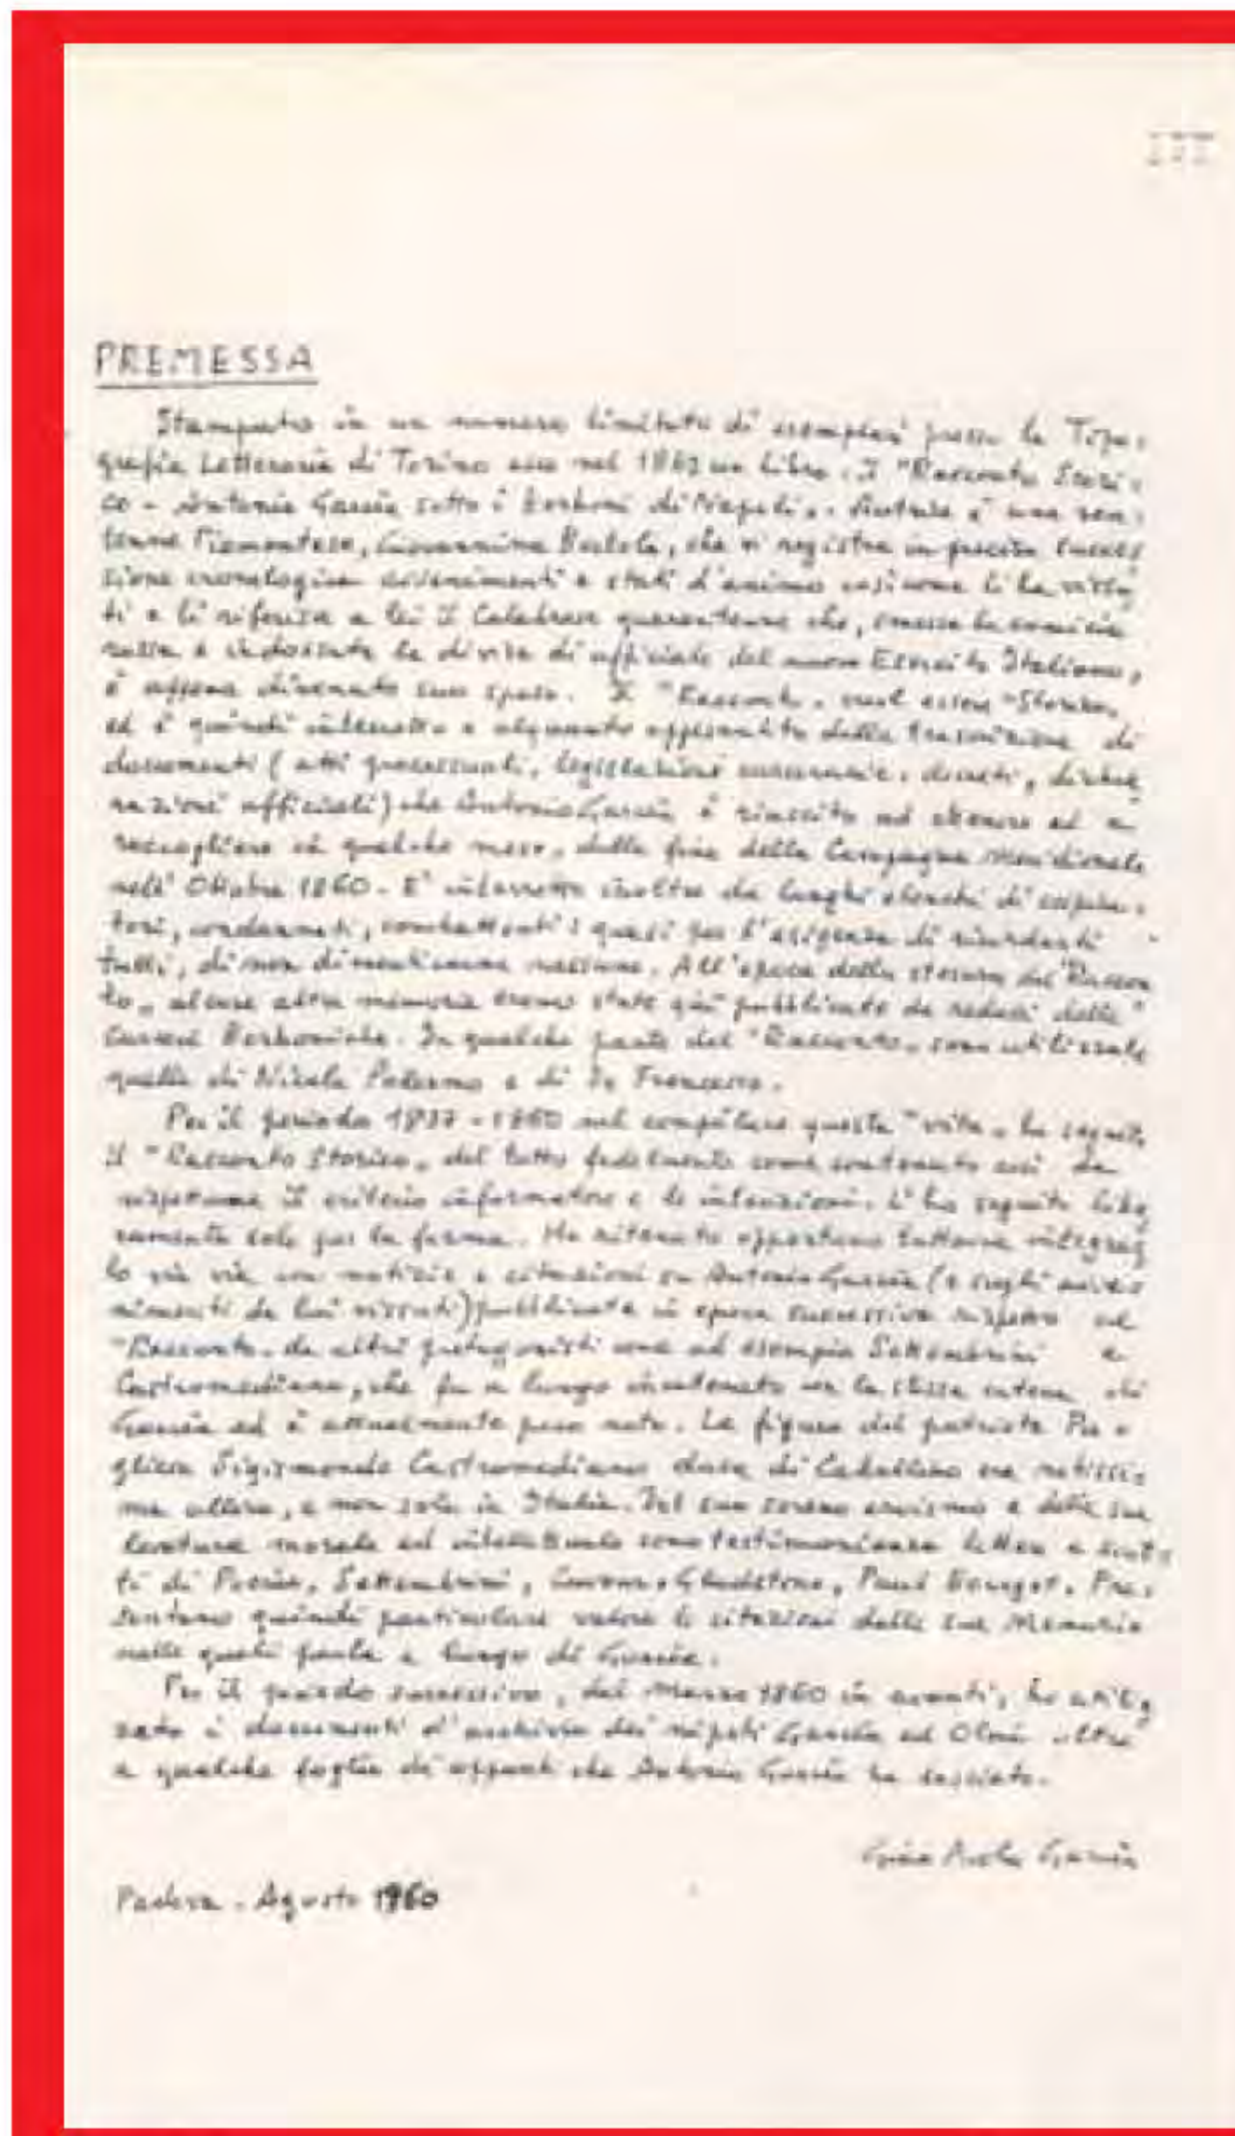 III
PREMESSA
Stampato in un numero limitato di esemplari presso la Tipo-
grafia Letteraria di Torino esce nel 1862 un libro. Il "Racconto Stori-
co - Antonio Garcèa sotto i Borboni di Napoli". Autrice è una ven-
tenne Piemontese, Giovannina Bertola, che vi registra in precisa succes
sione cronologica avvenimenti e stati d'animo così come li ha vissu
ti e li riferisce a lei il Calabrese quarantenne che, smessa la camicia
rossa e indossata la divisa di ufficiale del nuovo Esercito Italiano,
è appena divenuto suo sposo. Il "Racconto" vuol essere "Storico"
ed è quindi interrotto e alquanto appesantito dalla trascrizione di
documenti (atti processuali, legislazioni carcerarie, decreti, dichia
razioni ufficiali) che Antonio Garcèa è riuscito ad ottenere ed a
raccogliere in qualche mese, dalla fine della Campagna Meridionale
nell'Ottobre 1860. E' interrotto inoltre da lunghi elenchi di cospira-
tori, condannati, combattenti: quasi per l'esigenza di ricordarli
tutti, di non dimenticarne nessuno. All'epoca della stesura del "Raccon
to" alcune altre memorie erano state già pubblicate da reduci dalle
Carceri Borboniche. In qualche parte del "Racconto" sono utilizzate
quelle di Nicola Palermo e di De Francesco.
Per il periodo 1837-1860 nel compilare questa "vita" ho seguito
il "Racconto Storico" del tutto fedelmente come contenuto così da
rispettarne il criterio informatore e le intenzioni. L'ho seguito libe
ramente solo per la forma. Ho ritenuto opportuno tuttavia integrar
lo via via con notizie e citazioni su Antonio Garcèa (e sugli avve
nimenti da lui vissuti) pubblicate in epoca successiva rispetto al
"Racconto" da altri protagonisti come ad esempio Settembrini e
Castromediano, che fu a lungo incatenato con la stessa catena di
Garcèa ed è attualmente poco noto. La figura del patriota Pu-
gliese Sigismondo Castromediano duca di Caballino era notissi-
ma allora, e non solo in Italia. Del suo sereno eroismo e della sua
levatura morale ed intellettuale sono testimonianza lettere e scrit-
ti di Poerio, Settembrini, Gladstone, Paul Bourget. Pre-
sentano quindi particolare valore le citazioni dalle sue Memorie
nelle quali parla a lungo di Garcèa.
Per il periodo successivo, dal Marzo 1860 in avanti, ho utiliz
zato i documenti d'archivio dei nipoti Garcèa ed oltre
a qualche foglio di appunti che Antonio Garcèa ha lasciato.
Garcèa
Padova - Agosto 1960